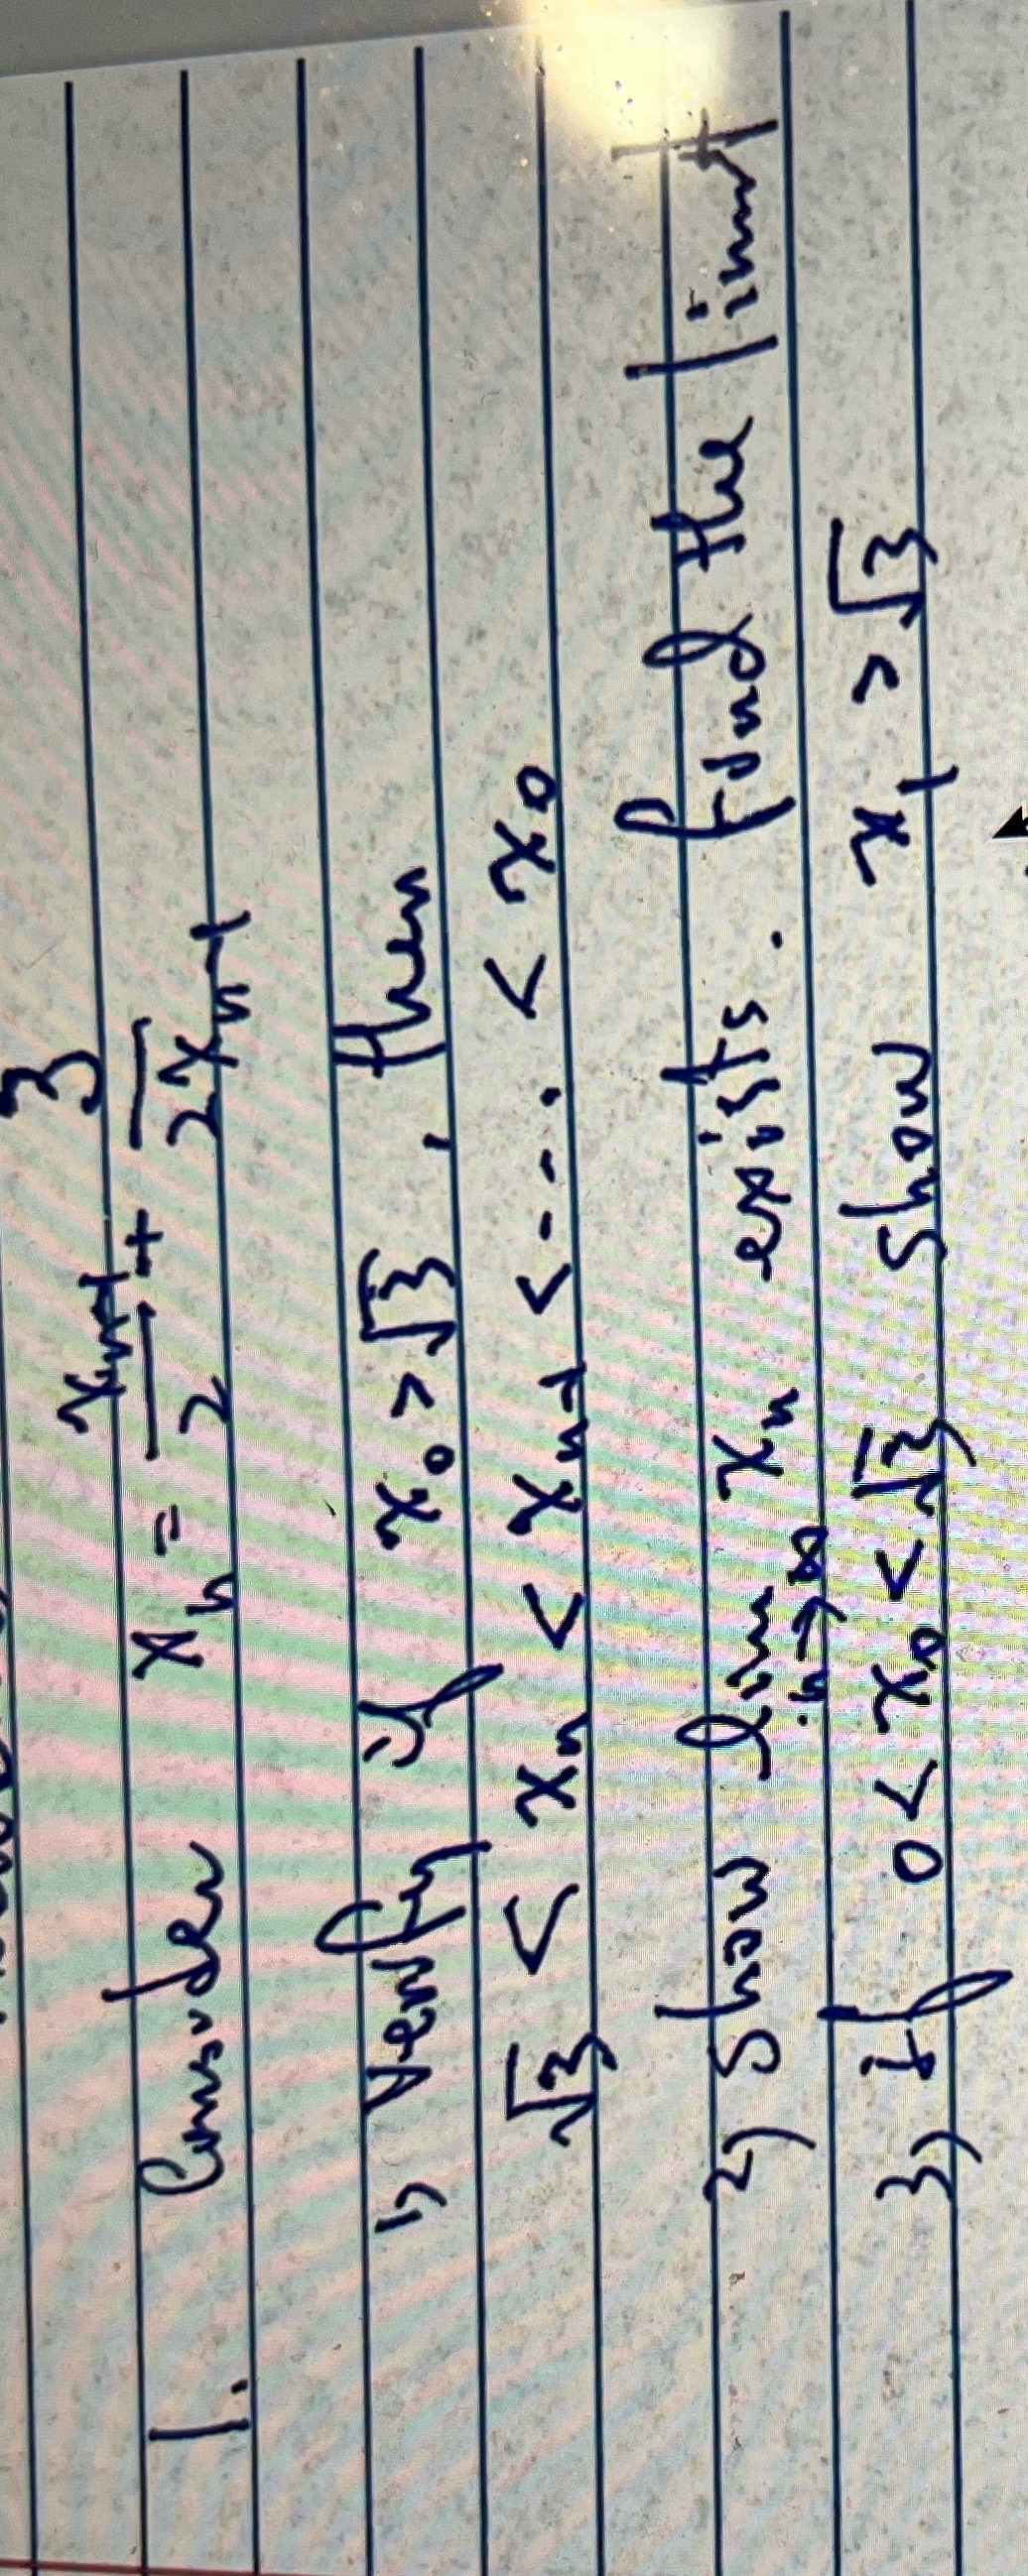 1. Consider xₙ = xₙ₋₁/2 + 3/(2xₙ₋₁)
1) Verify if x₀ > √3, then
√3 < xₙ < xₙ₋₁ < ---. < x₀
2) Show lim n→∞ xₙ exists. find the limit
3) If 0 < x₀ < √3 Show x₁ > √3